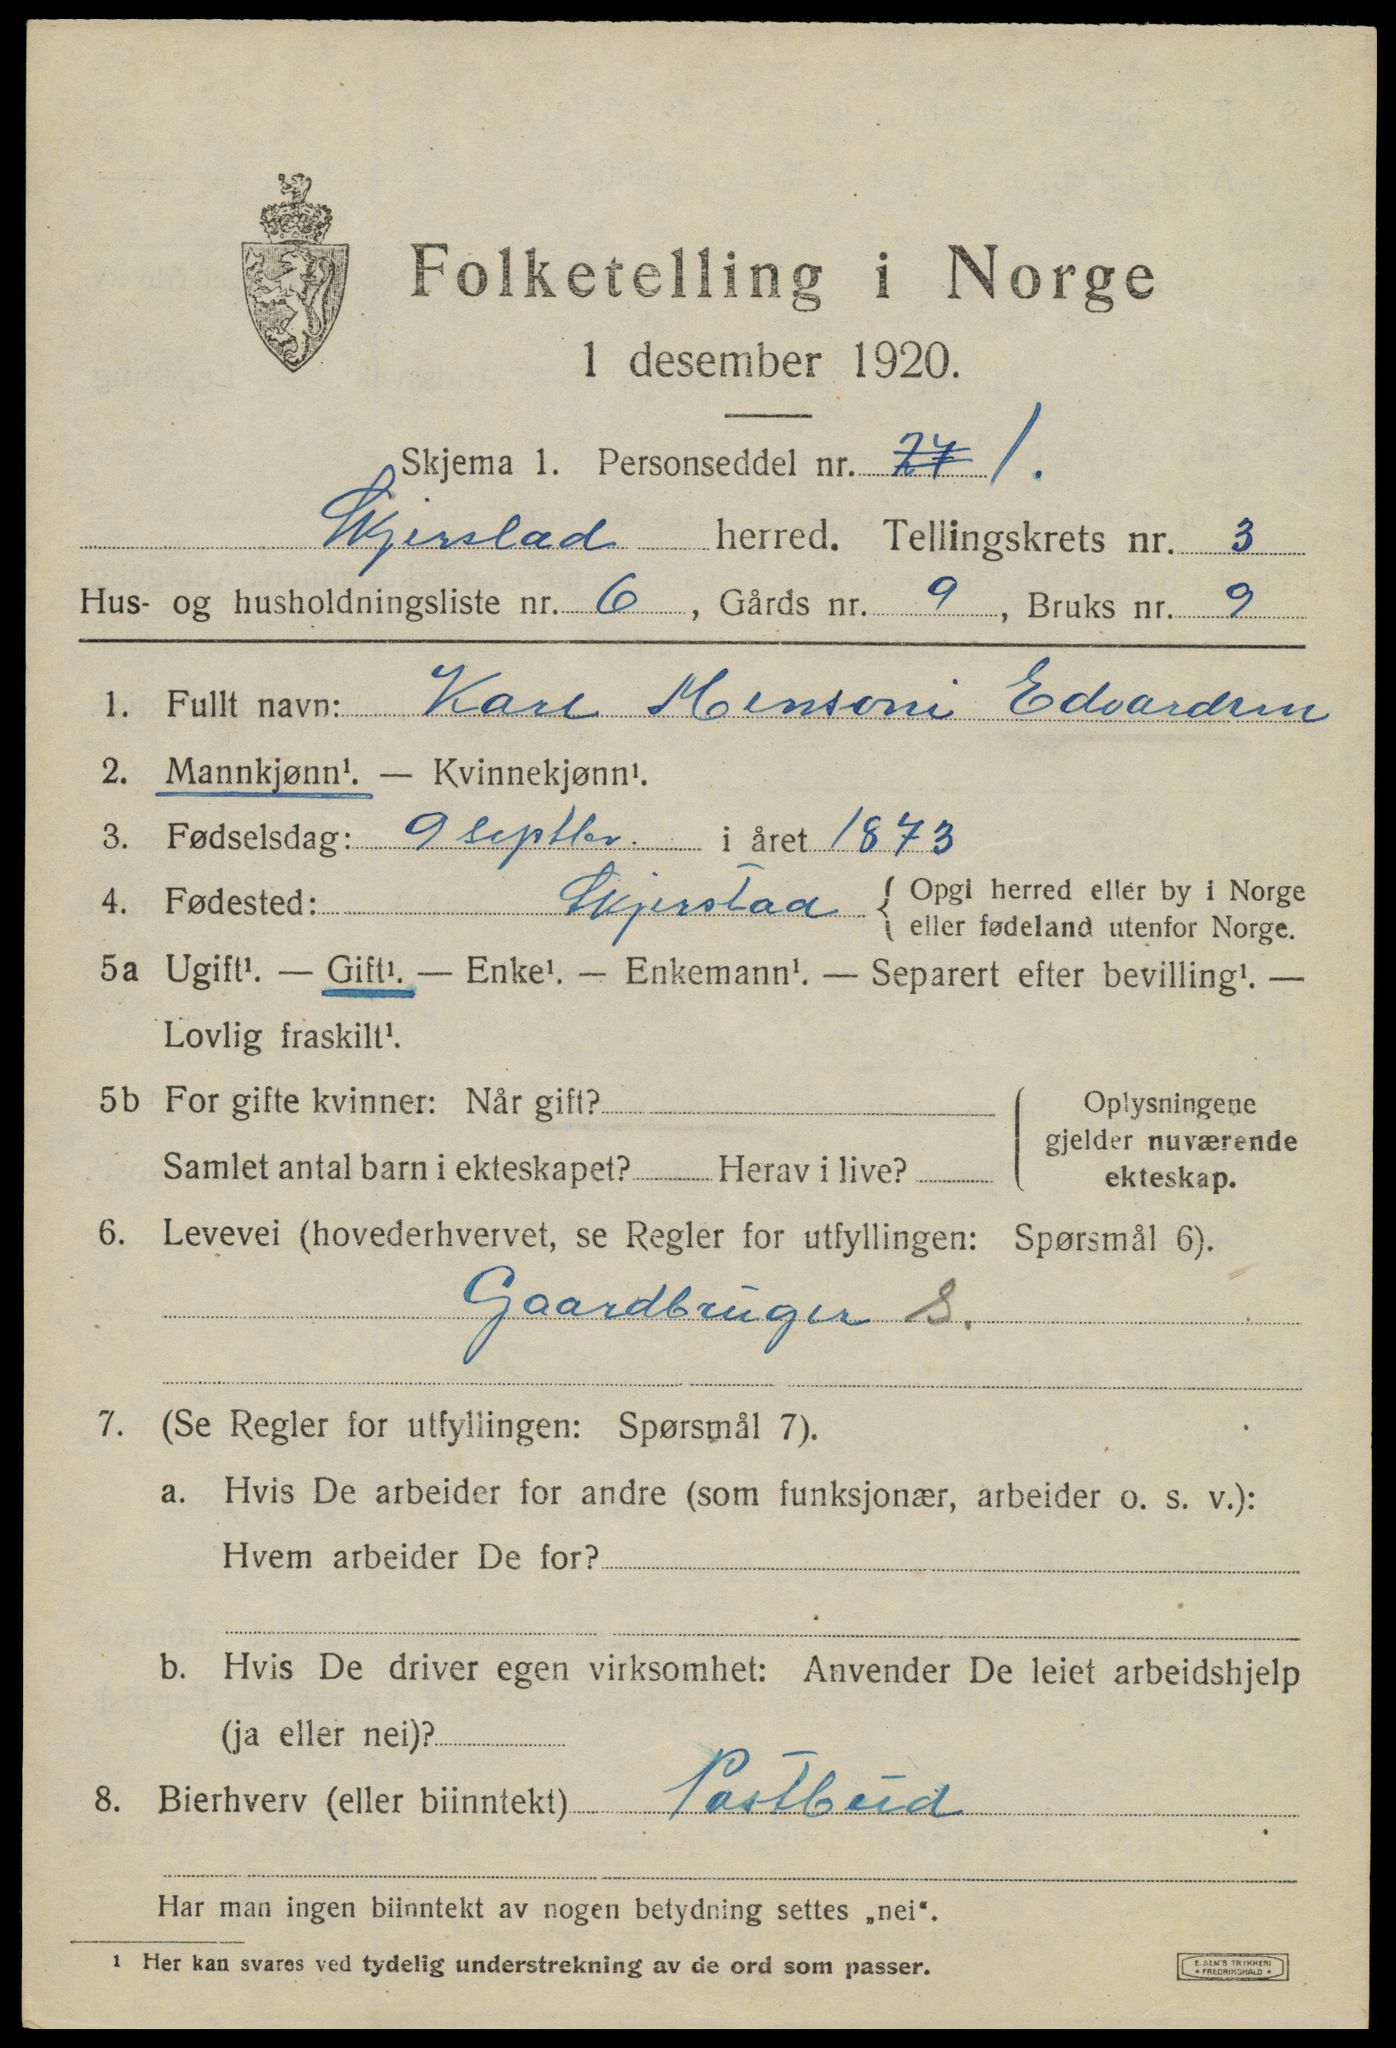 Folketelling i Norge
1 desember 1920.
Skjema 1. Personseddel nr. 1.
Skjerstad herred. Tellingskrets nr. 3
Hus- og husholdningsliste nr. 6, Gårds nr. 9, Bruks nr. 9
1. Fullt navn: Karl Mensoni Edvardsen
2. Mannkjønn¹. — Kvinnekjønn¹.
3. Fødselsdag: 9 septbr. i året 1873
4. Fødested: Skjerstad { Opgi herred eller by i Norge
eller fødeland utenfor Norge.
5a Ugift¹. — Gift¹. — Enke¹. — Enkemann¹. — Separert efter bevilling¹. —
Lovlig fraskilt¹.
5b For gifte kvinner: Når gift?
Samlet antal barn i ekteskapet? Herav i live?
Oplysningene
gjelder nuværende
ekteskap.
6. Levevei (hovederhvervet, se Regler for utfyllingen: Spørsmål 6).
Gaardbruger S.
7. (Se Regler for utfyllingen: Spørsmål 7).
a. Hvis De arbeider for andre (som funksjonær, arbeider o. s. v.):
Hvem arbeider De for?
b. Hvis De driver egen virksomhet: Anvender De leiet arbeidshjelp
(ja eller nei)?
8. Bierhverv (eller biinntekt) Postbud
Har man ingen biinntekt av nogen betydning settes „nei“.
¹ Her kan svares ved tydelig understrekning av de ord som passer.
E. SEM'S TRYKKERI
• FREDRIKSHALD •